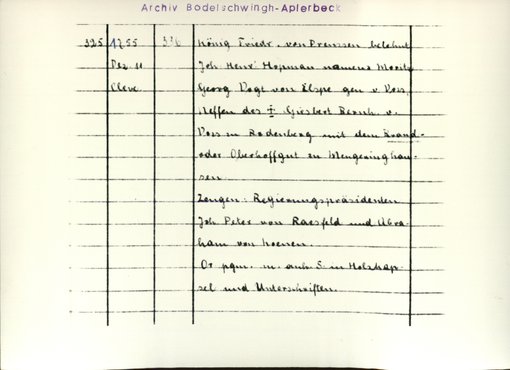 Archiv Bodelschwingh-Aplerbeck
325 1755 336 König Friedr. von Preussen belehnt
Dez. 11 Joh. Henr. Hopman namens Moritz
Cleve Georg Vogt von Elspe gen. v. Voss,
Neffen des ‡ Giesbert Bernh. v.
Voss zu Rodenberg mit dem Brand-
oder Oberhoffgut zu Mengeringhau-
sen.
Zeugen: Regierungspräsidenten
Joh. Peter von Raesfeld und Abra-
ham von Hoenen.
Or. pgm. m. anh. S. in Holzkap-
sel und Unterschriften.